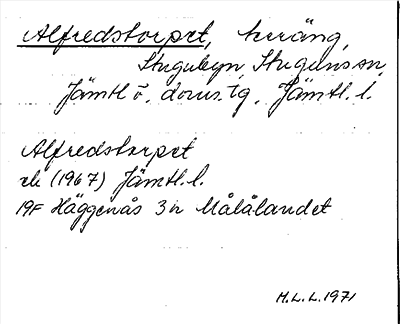 Alfredstorpet, kuräng,
Stugubyn, Stuguns sn,
Jämtl ö. doms. tg, Jämtl. l.
Alfredstorpet
ek (1967) Jämtl. l.
19F Häggenås 3 h Målålandet
M.L.L. 1971